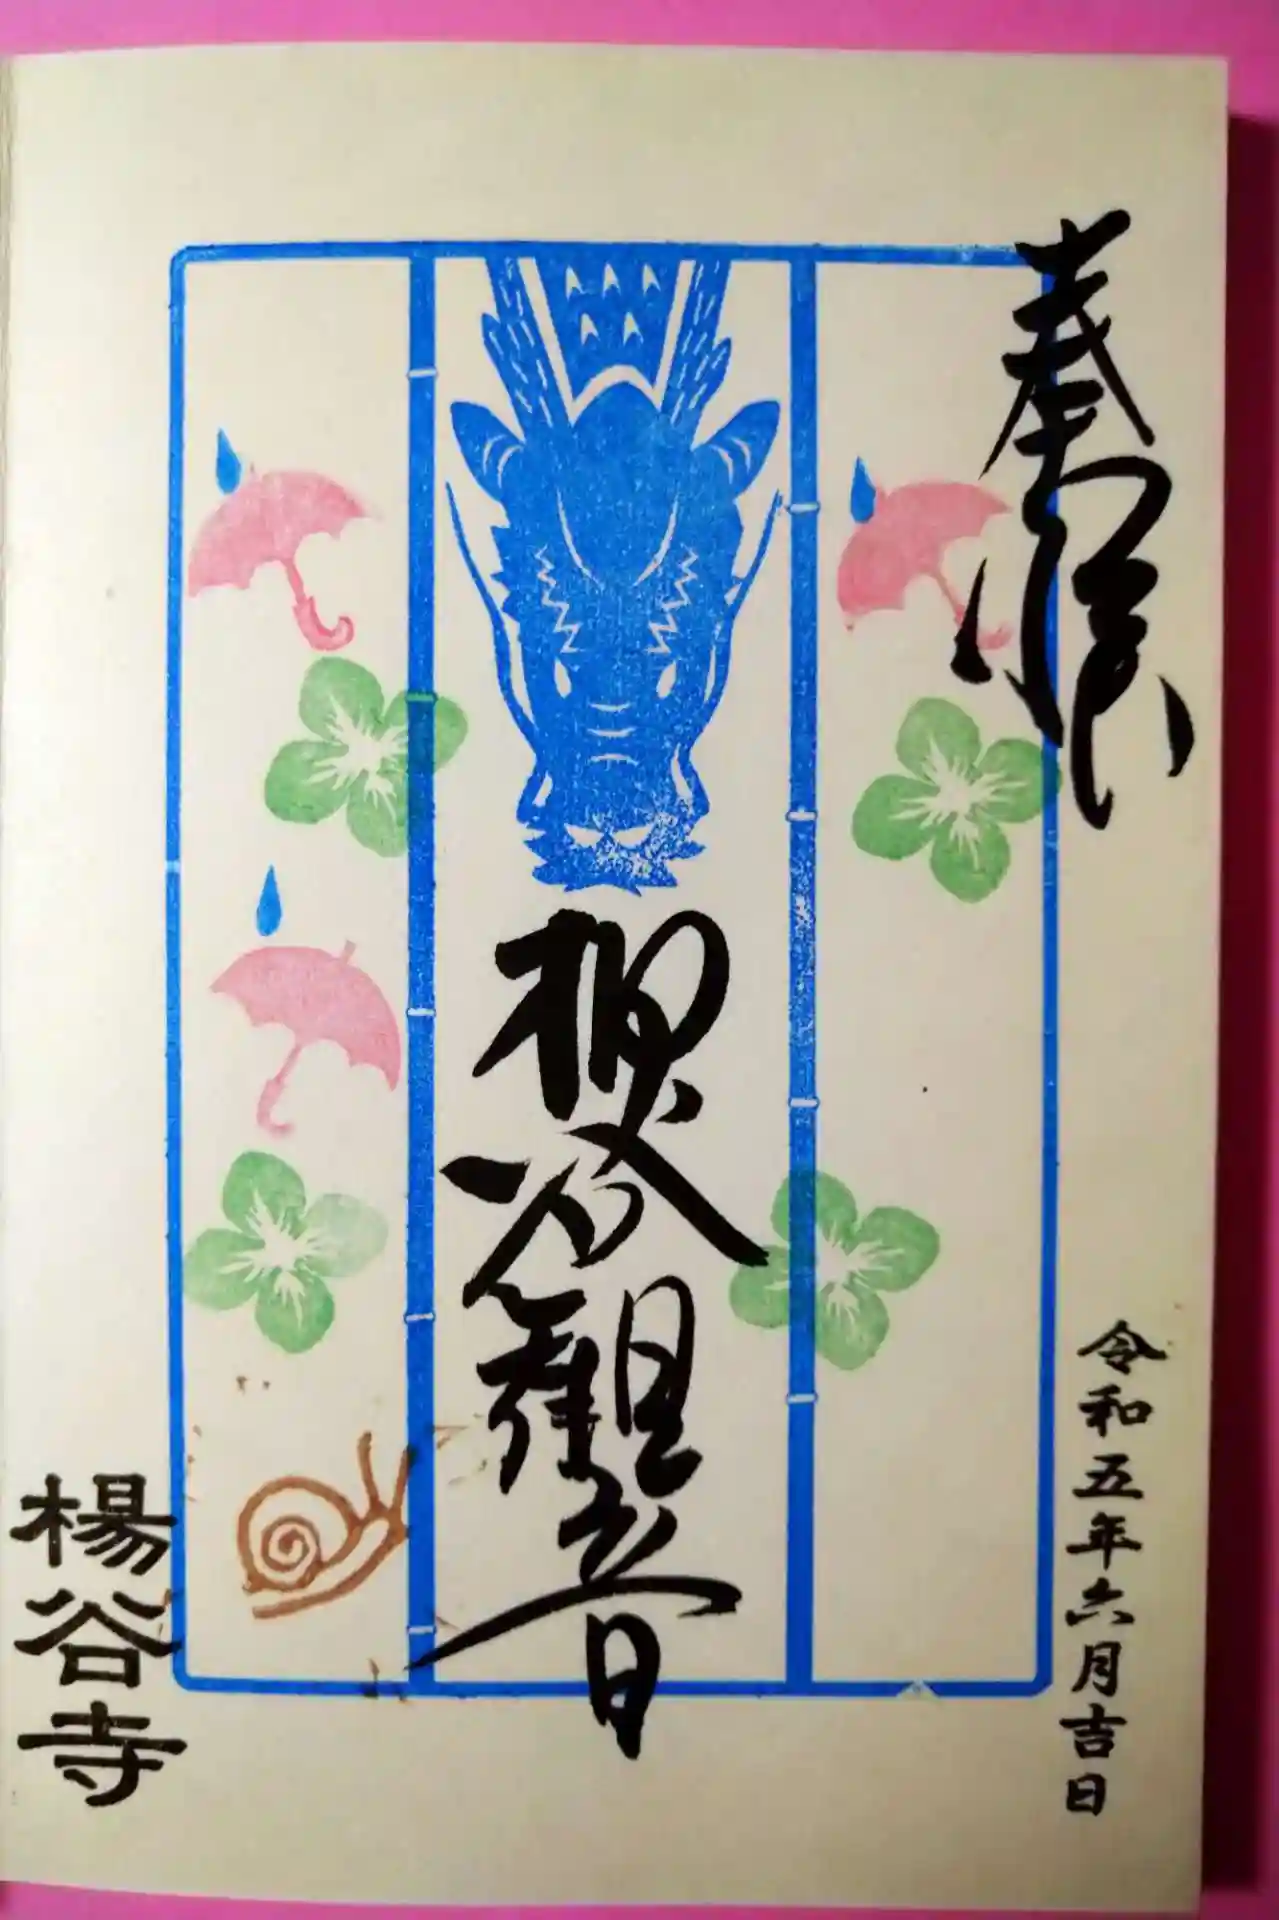 奉拝
柳谷觀音
令和五年六月吉日
楊谷寺